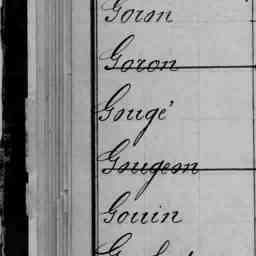 Goron
Goron
Gougé
Gougeon
Gouin